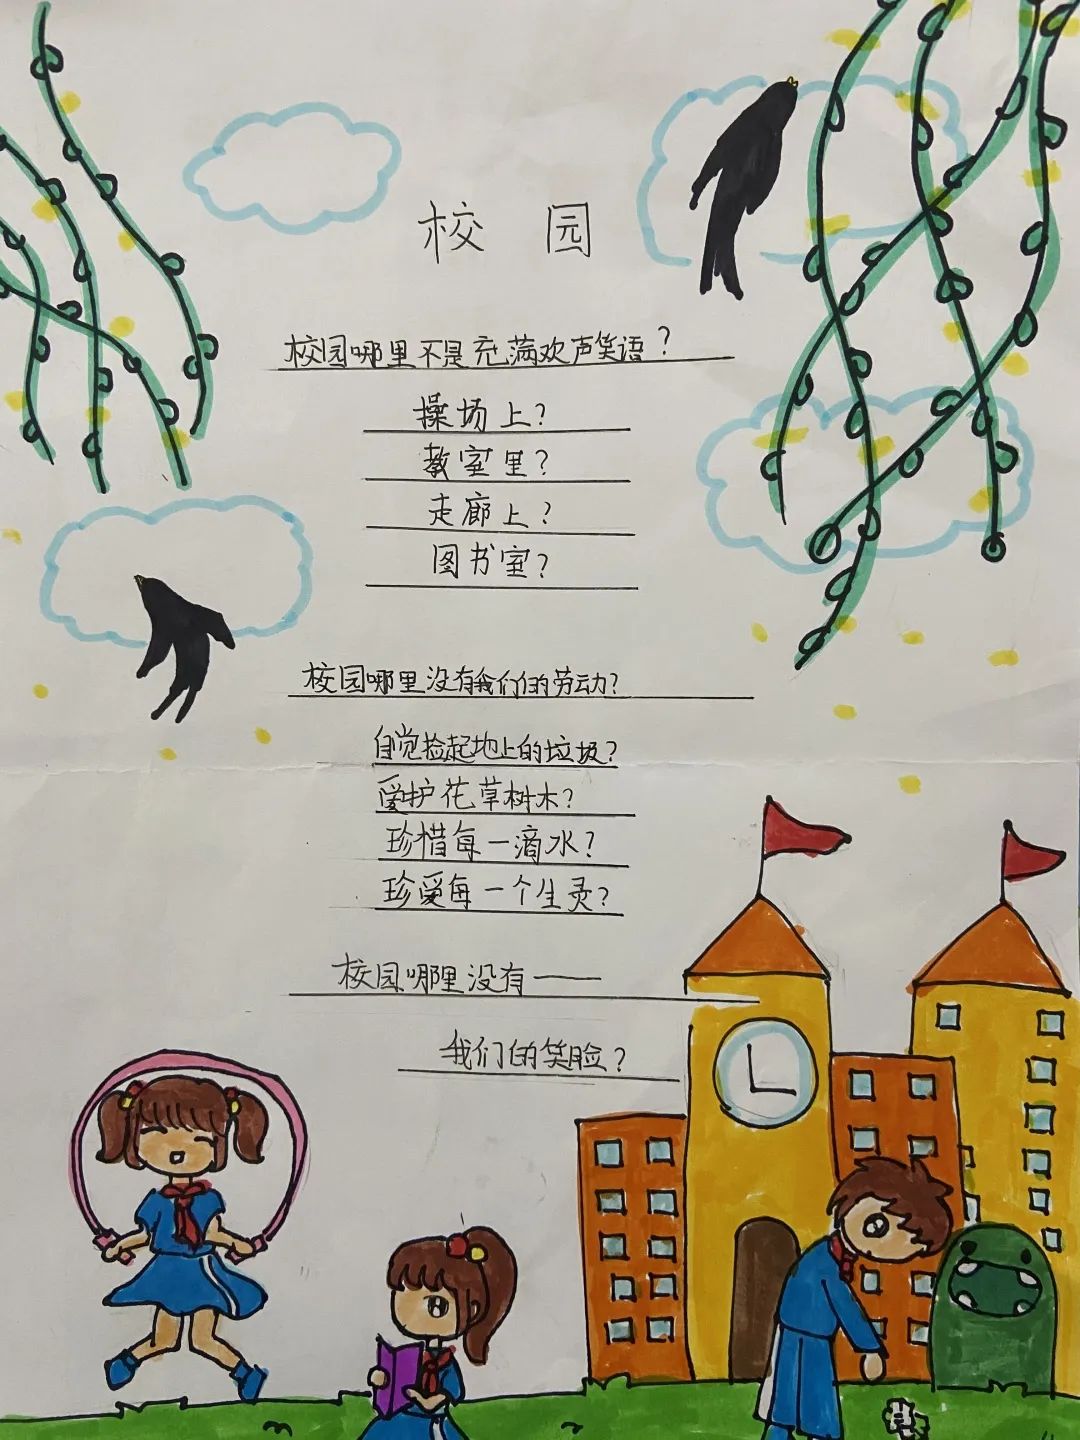 校园
校园哪里不是充满欢声笑语?
操场上?
教室里?
走廊上?
图书室?
校园哪里没有我们的劳动?
自觉捡起地上的垃圾?
爱护花草树木?
珍惜每一滴水?
珍爱每一个生灵?
校园哪里没有——
我们的笑脸?